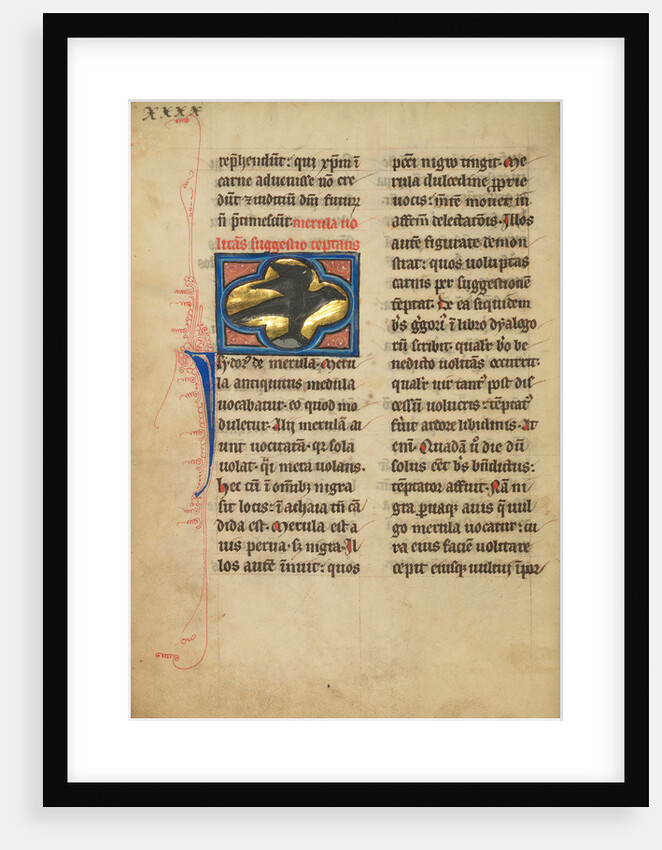 xxxx
rep̄hendūt: qui xp̄m ī
carne aduenisse nō cre
dūt ⁊ iudiciū dn̄i futurꝝ
n̄ p̄timescūt. merula uo
litās suggestio teptatis
Isydoꝰ de merula. Meru
la antiquitus medula
uocabatur. eo quod mo
duletur. Alij merulā ai
unt uocitatā. qꝛ sola
uolat. q̄i mera uolans.
Hec cū ī om̄ibꝫ nigra
sit locis: ī achaia tn̄ cā
dida est. Merula est a
uis parua. sꝫ nigra. Il
los autē īnuit: quos
pcc̄i nigro tingit. Me
rula dulcedine ꝓprie
uocis: mētē mouet in
affcm̄ delectac̄ōis. Illos
autē figurate demon
strat: quos uoluptas
carnis per suggestionē
tēptat. De ea siquidem
bꝰs g̓goriꝰ ī libro dyalogo
rū scribit. qualꝛ bō be
nedicto uolitās occurrit.
qualꝛ uir sanctꝰ post dis
cessū uolucris: tēptatꝰ
fūit ardore libidinis. At
enī. Quadā u̓o die dū
solus eēt bꝰs bn̄dictus:
tēptator affuit. Nā ni
gra paruaqꝫ auis q̄ uul
go merula uocatur: cir
ca eius faciē uolitare
cepit eiusqꝫ uultui īpor